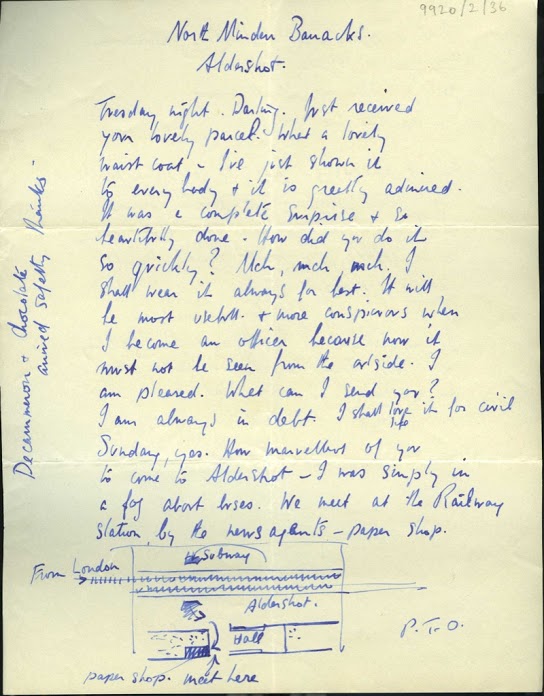 9920/2/36
North Minden Barracks.
Aldershot.
Tuesday night. Darling. Just received
your lovely parcel. What a lovely
waist coat – I've just shown it
to every body & it is greatly admired.
It was a complete surprise & so
beautifully done. How did you do it
so quickly? Mch, mch, mch. I
shall wear it always for best. It will
be most usefull & more conspicuous when
I become an officer because now it
must not be seen from the outside. I
am pleased. What can I send you?
I am always in debt. I shall love it for civil
life
Sunday, yes. How marvellous of you
to come to Aldershot – I was simply in
a fog about buses. We meet at the Railway
Station, by the news agents – paper shop.
Subway
From London
Aldershot.
Hall
P.T.O.
paper shop. meet here
Decammeron & Chocolate
arrived safely Thanks –